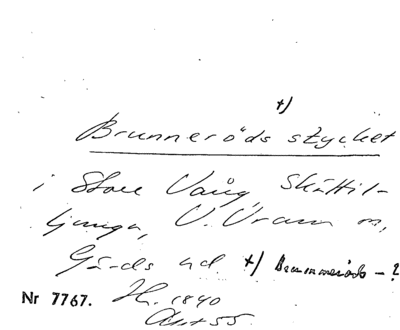 +)
Brunneröds stycket
i Store Vång, Skättil-
ljunga, V. Vram m,
Gärds hd. +) Brummeröds - ?
Nr 7767. H. 1840
Akt 55